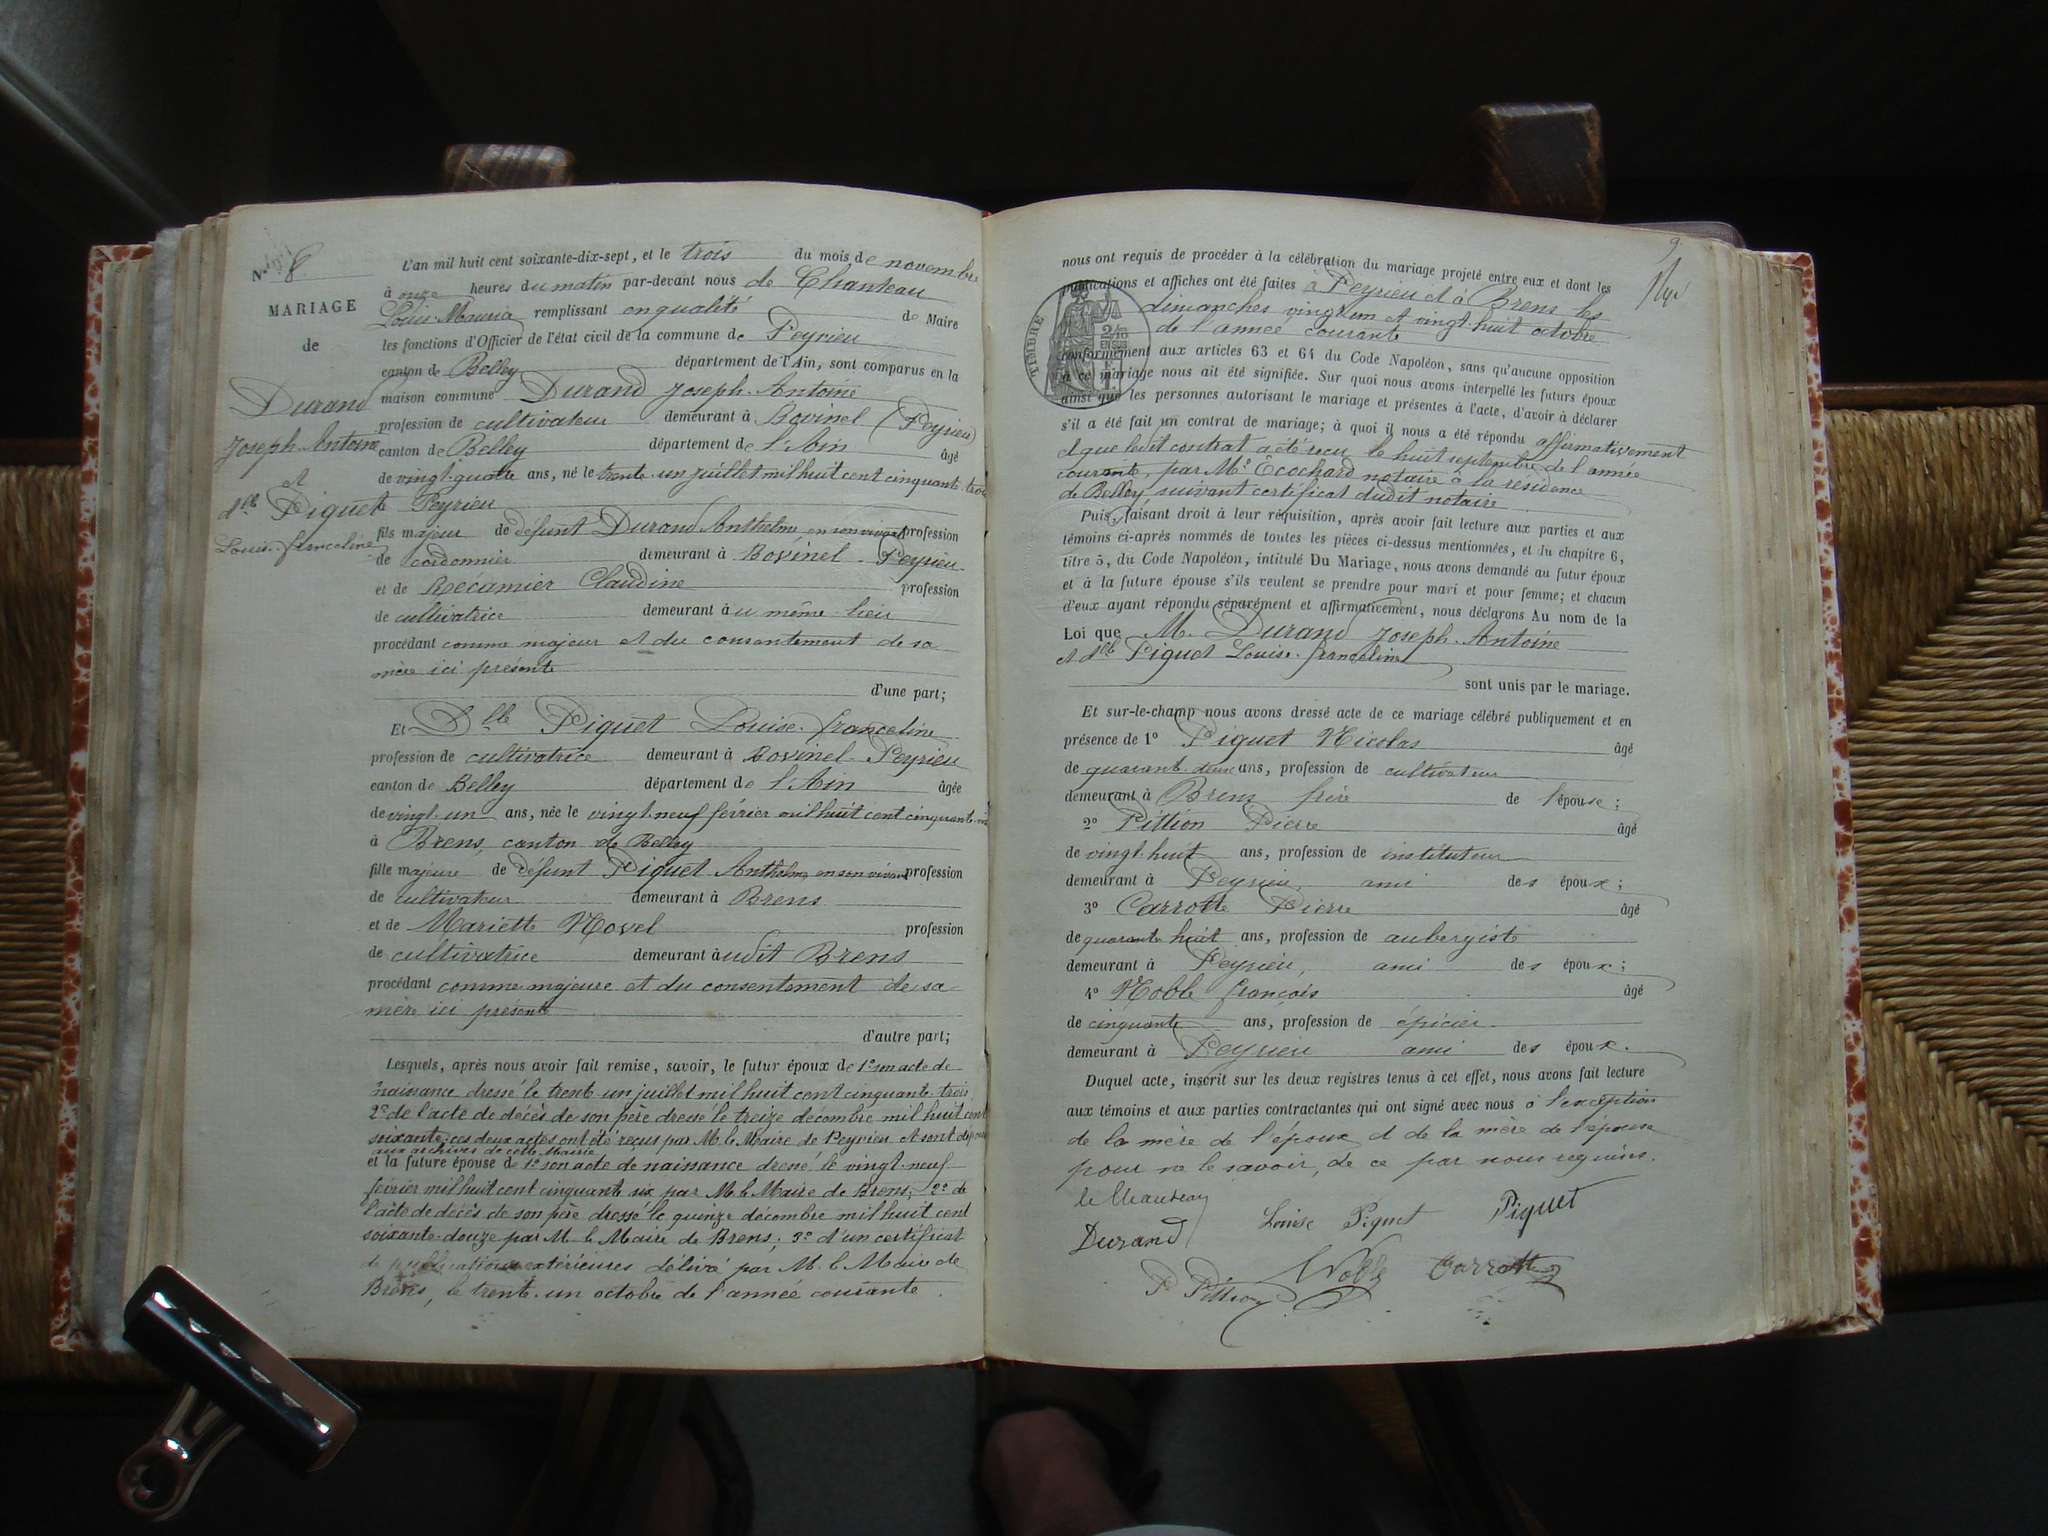 N° 8
MARIAGE
de
Durand
Joseph-Antoine
et
dlle Piguet
Louise-franceline
L'an mil huit cent soixante-dix-sept, et le trois du mois de novembre
à onze heures du matin par-devant nous de Chanteau
Louis-Maurice remplissant en qualité de Maire
les fonctions d'Officier de l'état civil de la commune de Peyrieu
canton de Belley département de l'Ain, sont comparus en la
maison commune Durand Joseph-Antoine
profession de cultivateur demeurant à Bovinel (Peyrieu)
canton de Belley département de l'Ain âgé
de vingt-quatre ans, né le trente-un juillet mil huit cent cinquante-trois
à Peyrieu
fils majeur de défunt Durand Anthelme en son vivant profession
de cordonnier demeurant à Bovinel-Peyrieu
et de Récamier Claudine profession
de cultivatrice demeurant au même lieu
procédant comme majeur et du consentement de sa
mère ici présente
d'une part;
Et Dlle Piguet Louise-franceline
profession de cultivatrice demeurant à Bovinel-Peyrieu
canton de Belley département de l'Ain âgée
de vingt-un ans, née le vingt-neuf février mil huit cent cinquante-six
à Brens, canton de Belley
fille majeure de défunt Piguet Anthelme en son vivant profession
de cultivateur demeurant à Brens
et de Mariette Novel profession
de cultivatrice demeurant audit Brens
procédant comme majeure et du consentement de sa
mère ici présente
d'autre part;
Lesquels, après nous avoir fait remise, savoir, le futur époux de 1° son acte de
naissance dressé le trente-un juillet mil huit cent cinquante-trois
2° de l'acte de décès de son père dressé le treize décembre mil huit cent
soixante; ces deux actes ont été reçus par M. le Maire de Peyrieu et sont déposés
aux archives de cette Mairie
et la future épouse de 1° son acte de naissance dressé le vingt-neuf
février mil huit cent cinquante six par M. le Maire de Brens; 2° de
l'acte de décès de son père dressé le quinze décembre mil huit cent
soixante-douze par M. le Maire de Brens; 3° d'un certificat
de publications extérieures délivré par M. le Maire de
Brens, le trente-un octobre de l'année courante.
9
nous ont requis de procéder à la célébration du mariage projeté entre eux et dont les
publications et affiches ont été faites à Peyrieu et à Brens les
dimanches vingt un et vingt-huit octobre
de l'année courante
TIMBRE
conformément aux articles 63 et 64 du Code Napoléon, sans qu'aucune opposition
à ce mariage nous ait été signifiée. Sur quoi nous avons interpellé les futurs époux
ainsi que les personnes autorisant le mariage et présentes à l'acte, d'avoir à déclarer
s'il a été fait un contrat de mariage; à quoi il nous a été répondu affirmativement
et que ledit contrat a été reçu le huit septembre de l'année
courante, par Me Ecochard notaire à la résidence
de Belley, suivant certificat dudit notaire
Puis, faisant droit à leur réquisition, après avoir fait lecture aux parties et aux
témoins ci-après nommés de toutes les pièces ci-dessus mentionnées, et du chapitre 6,
titre 5, du Code Napoléon, intitulé Du Mariage, nous avons demandé au futur époux
et à la future épouse s'ils veulent se prendre pour mari et pour femme; et chacun
d'eux ayant répondu séparément et affirmativement, nous déclarons Au nom de la
Loi que M. Durand Joseph-Antoine
et dlle Piguet Louise-franceline
sont unis par le mariage.
Et sur-le-champ nous avons dressé acte de ce mariage célébré publiquement et en
présence de 1° Piguet Nicolas âgé
de quarante-deux ans, profession de cultivateur
demeurant à Brens frère de l'épouse;
2° Pittion Pierre âgé
de vingt-huit ans, profession de instituteur
demeurant à Peyrieu, ami des époux;
3° Carrotte Pierre âgé
de quarante huit ans, profession de aubergiste
demeurant à Peyrieu, ami des époux;
4° Noble françois âgé
de cinquante ans, profession de épicier
demeurant à Peyrieu ami des époux.
Duquel acte, inscrit sur les deux registres tenus à cet effet, nous avons fait lecture
aux témoins et aux parties contractantes qui ont signé avec nous à l'exception
de la mère de l'époux et de la mère de l'épouse
pour ne le savoir, de ce par nous requis.
de Chanteau
Durand Louise Piguet Piguet
P. Pittion Noble Carrotte